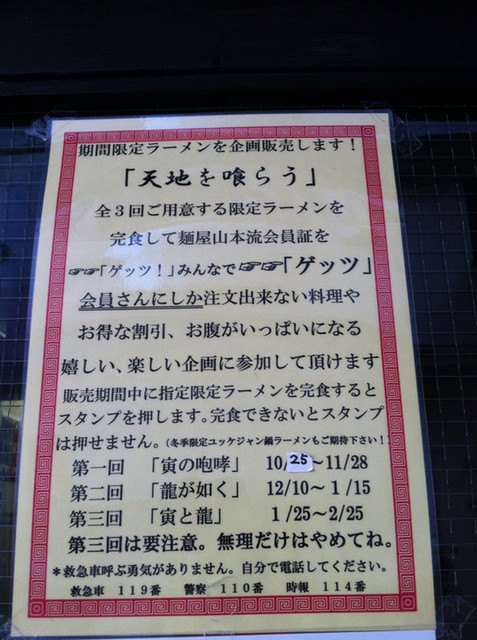 期間限定ラーメンを企画販売します！
「天地を喰らう」
全３回ご用意する限定ラーメンを
完食して麺屋山本流会員証を
☞☞「ゲッツ！」みんなで☞☞「ゲッツ」
会員さんにしか注文出来ない料理や
お得な割引、お腹がいっぱいになる
嬉しい、楽しい企画に参加して頂けます
販売期間中に指定限定ラーメンを完食すると
スタンプを押します。完食できないとスタンプ
は押せません。（冬季限定ユッケジャン鍋ラーメンもご期待下さい！）
第一回 「寅の咆哮」 10/25～11/28
第二回 「龍が如く」 12/10～１/15
第三回 「寅と龍」 １/25～2/25
第三回は要注意。無理だけはやめてね。
＊救急車呼ぶ勇気がありません。自分で電話してください。
救急車 １１９番 警察 １１０番 時報 １１４番